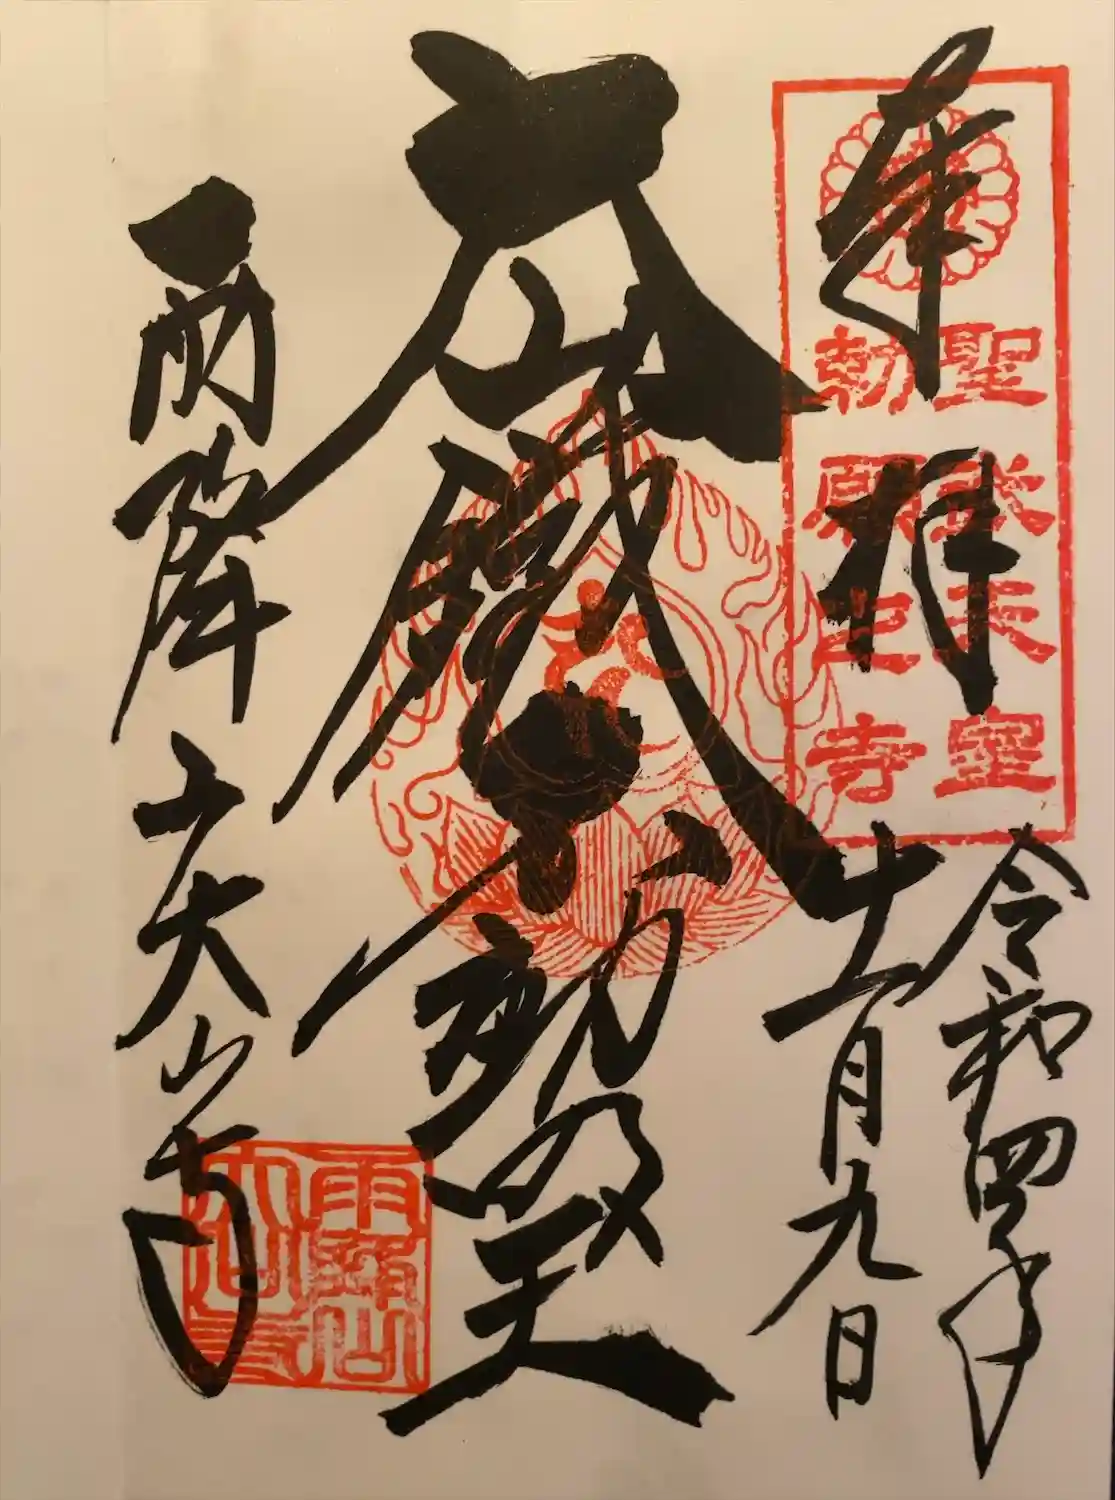 奉拝
聖武天皇
勅願之寺
令和四年
十一月九日
大山鐵不動明王
雨降山大山寺
雨降山
大山寺